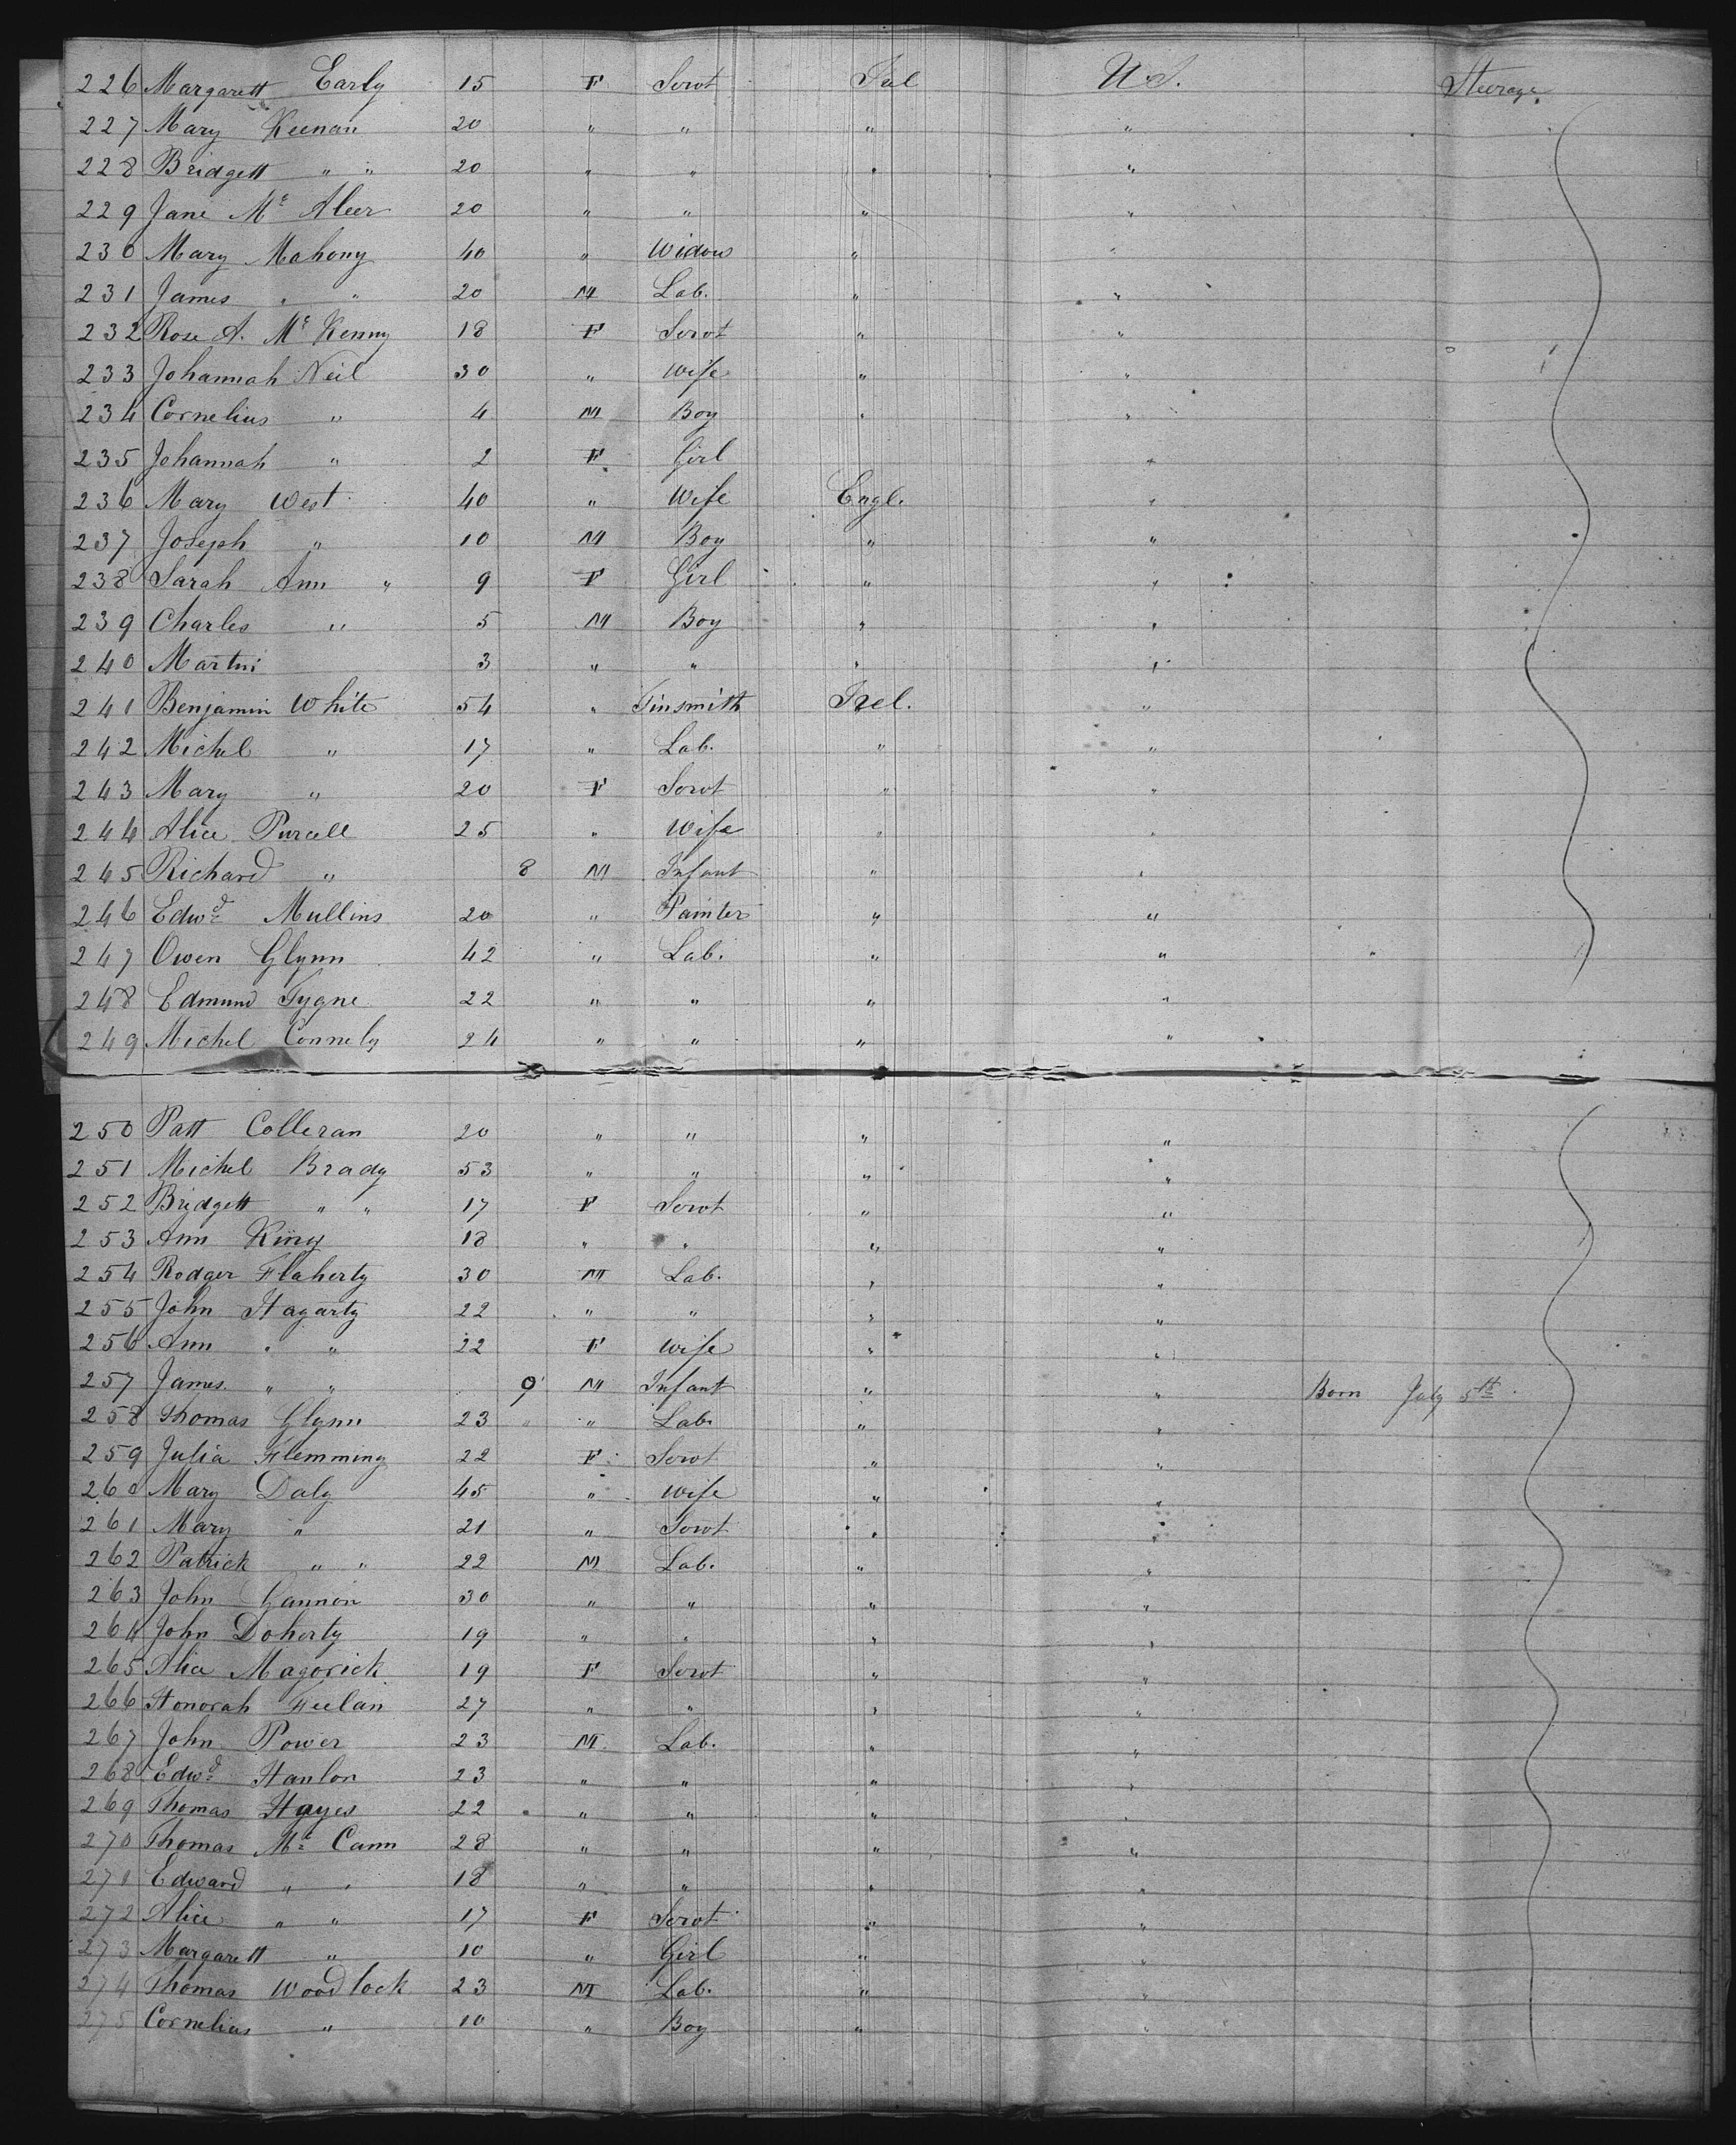 226 Margarett Early 15 F Servt Irel U.S. Steerage
227 Mary Keenan 20 " " " "
228 Bridgett " " 20 " " " "
229 Jane Mc Aleer 20 " " " "
230 Mary Mahony 40 " Widow " "
231 James " " 20 M Lab. " "
232 Rose A. Mc Kenny 18 F Servt " "
233 Johannah Neil 30 " Wife " "
234 Cornelius " 4 M Boy " "
235 Johannah " 2 F Girl "
236 Mary West 40 " Wife Engl. "
237 Joseph " 10 M Boy " "
238 Sarah Ann " 9 F Girl " "
239 Charles " 5 M Boy " "
240 Martin 3 " " " "
241 Benjamin White 54 " Tinsmith Irel. "
242 Michel " 17 " Lab. " "
243 Mary " 20 F Servt " "
244 Alice Purcell 25 " Wife " "
245 Richard " 8 M Infant " "
246 Edwd Mullins 20 " Painter " "
247 Owen Glynn 42 " Lab. " " "
248 Edmund Tygne 22 " " " "
249 Michel Connely 24 " " " "
250 Patt Colleran 20 " " " "
251 Michel Brady 53 " " " "
252 Bridgett " " 17 F Servt " "
253 Ann King 18 " " " "
254 Rodger Flaherty 30 M Lab. " "
255 John Hagarty 22 " " " "
256 Ann " " 22 F Wife " "
257 James " " 9 M Infant " " Born July 5th
258 Thomas Glynn 23 " " Lab. " "
259 Julia Flemming 22 F Servt " "
260 Mary Daly 45 " Wife " "
261 Mary " 21 " Servt " "
262 Patrick " " 22 M Lab. " "
263 John Gannon 30 " " " "
264 John Doherty 19 " " " "
265 Alice Magorick 19 F Servt " "
266 Honorah Feelan 27 " " " "
267 John Power 23 M Lab. " "
268 Edwd Hanlon 23 " " " "
269 Thomas Hayes 22 " " " "
270 Thomas Mc Cann 28 " " " "
271 Edward " " 18 " " " "
272 Alice " " 17 F Servt " "
273 Margarett " 10 " Girl " "
274 Thomas Woodlock 23 M Lab. " "
275 Cornelius " 10 " Boy " "